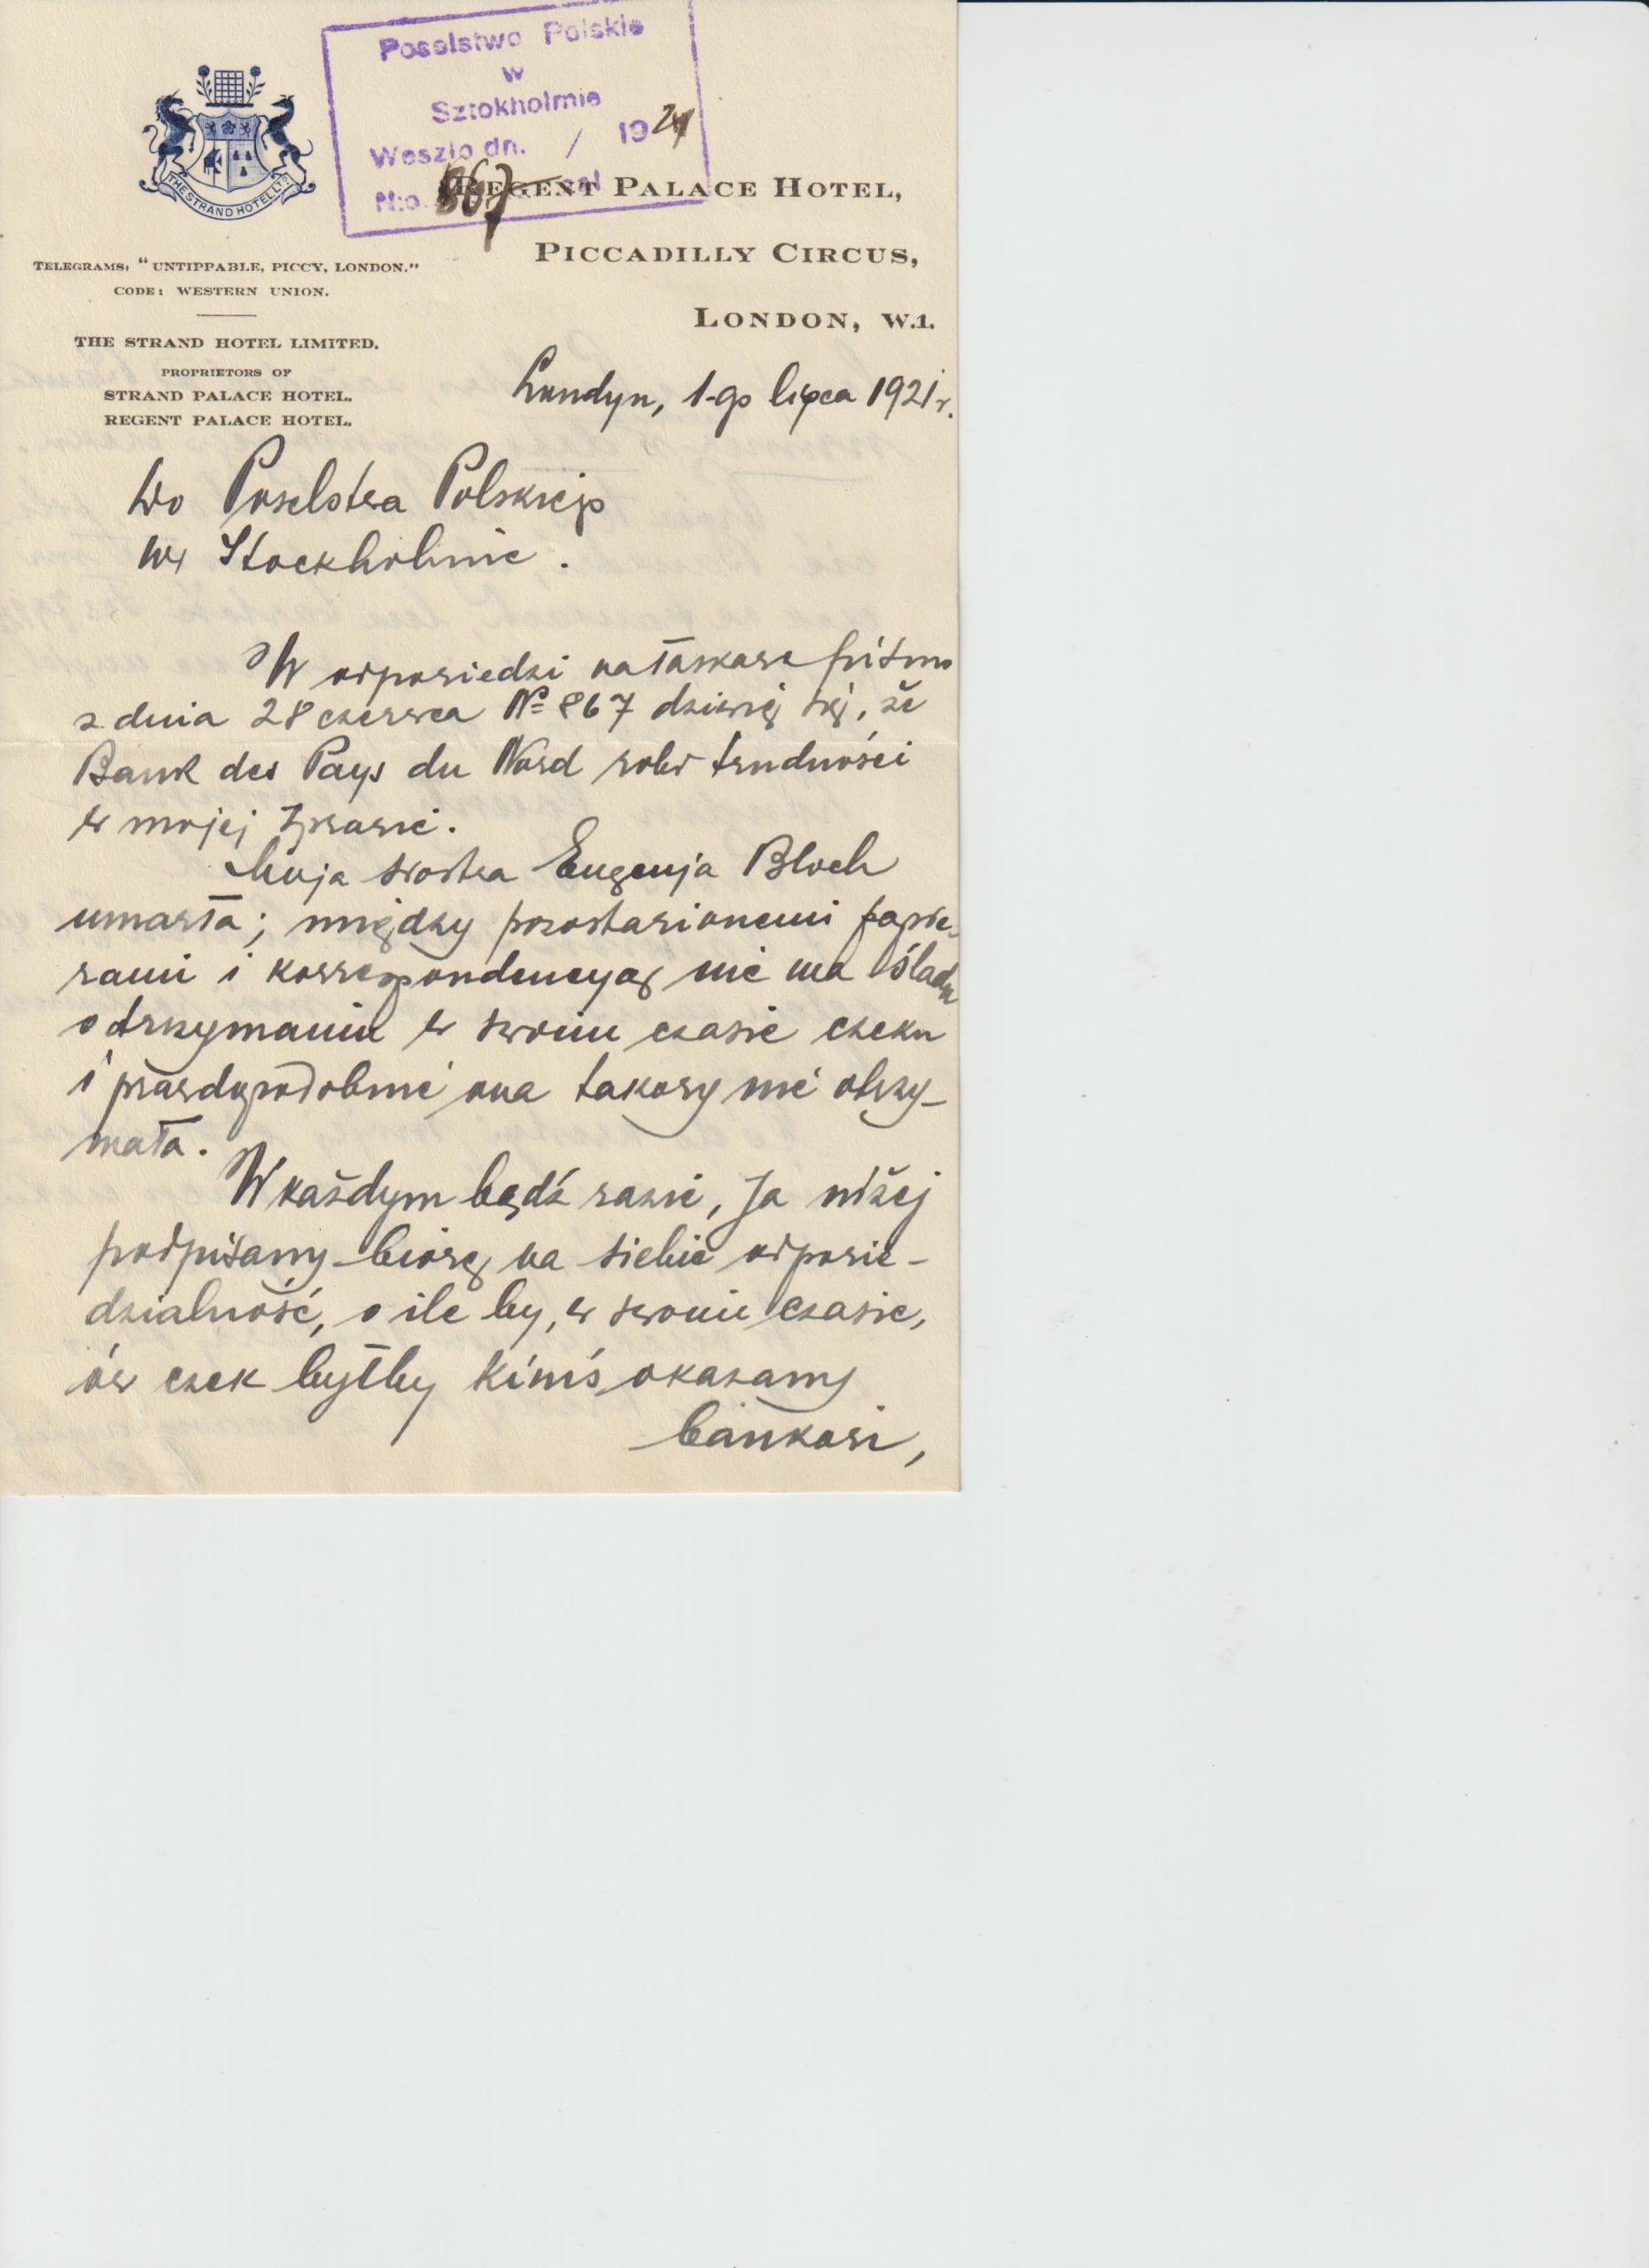 Poselstwo Polskie
w
Sztokholmie
Weszło dn. / 1921
N:o. 867
THE STRAND HOTEL LTD
REGENT PALACE HOTEL,
PICCADILLY CIRCUS,
LONDON, W.1.
TELEGRAMS: "UNTIPPABLE, PICCY, LONDON."
CODE: WESTERN UNION.
THE STRAND HOTEL LIMITED.
PROPRIETORS OF
STRAND PALACE HOTEL.
REGENT PALACE HOTEL.
Londyn, 1-go lipca 1921 r.
Do Poselstwa Polskiego
w Stockholmie.
W odpowiedzi na łaskawe pismo
z dnia 28 czerwca No 867 dziwię się, że
Bank des Pays du Nord robi trudności
w mojej sprawie.
Moja siostra Eugenja Bloch
umarła; między pozostawionemi papie-
rami i korrespondencyą nie ma śladu
otrzymaniu w swoim czasie czeku
i prawdopodobnie ona takowy nie otrzy-
mała.
W każdym bądź razie, Ja niżej
podpisany biorę na siebie odpowie-
dzialność, o ile by, w swoim czasie,
ów czek byłby kimś okazany
bankowi,